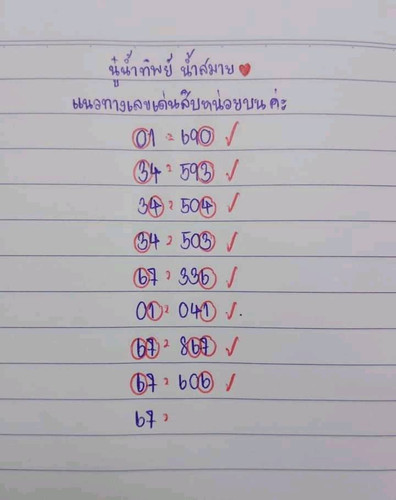 นู๋น้ำทิพย์ น้ำสมาย
แนวทางเลขเด่นสิบหน่อยบน ค่ะ
01 = 690 ✓
34 = 593 ✓
34 = 504 ✓
34 = 503 ✓
67 = 336 ✓
01 = 041 ✓
67 = 867 ✓
67 = 606 ✓
67 =